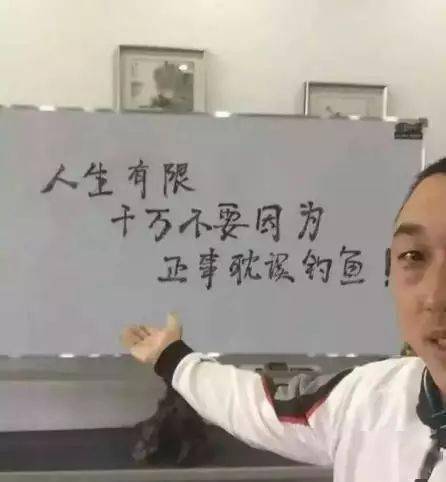 人生有限
千万不要因为
正事耽误钓鱼！